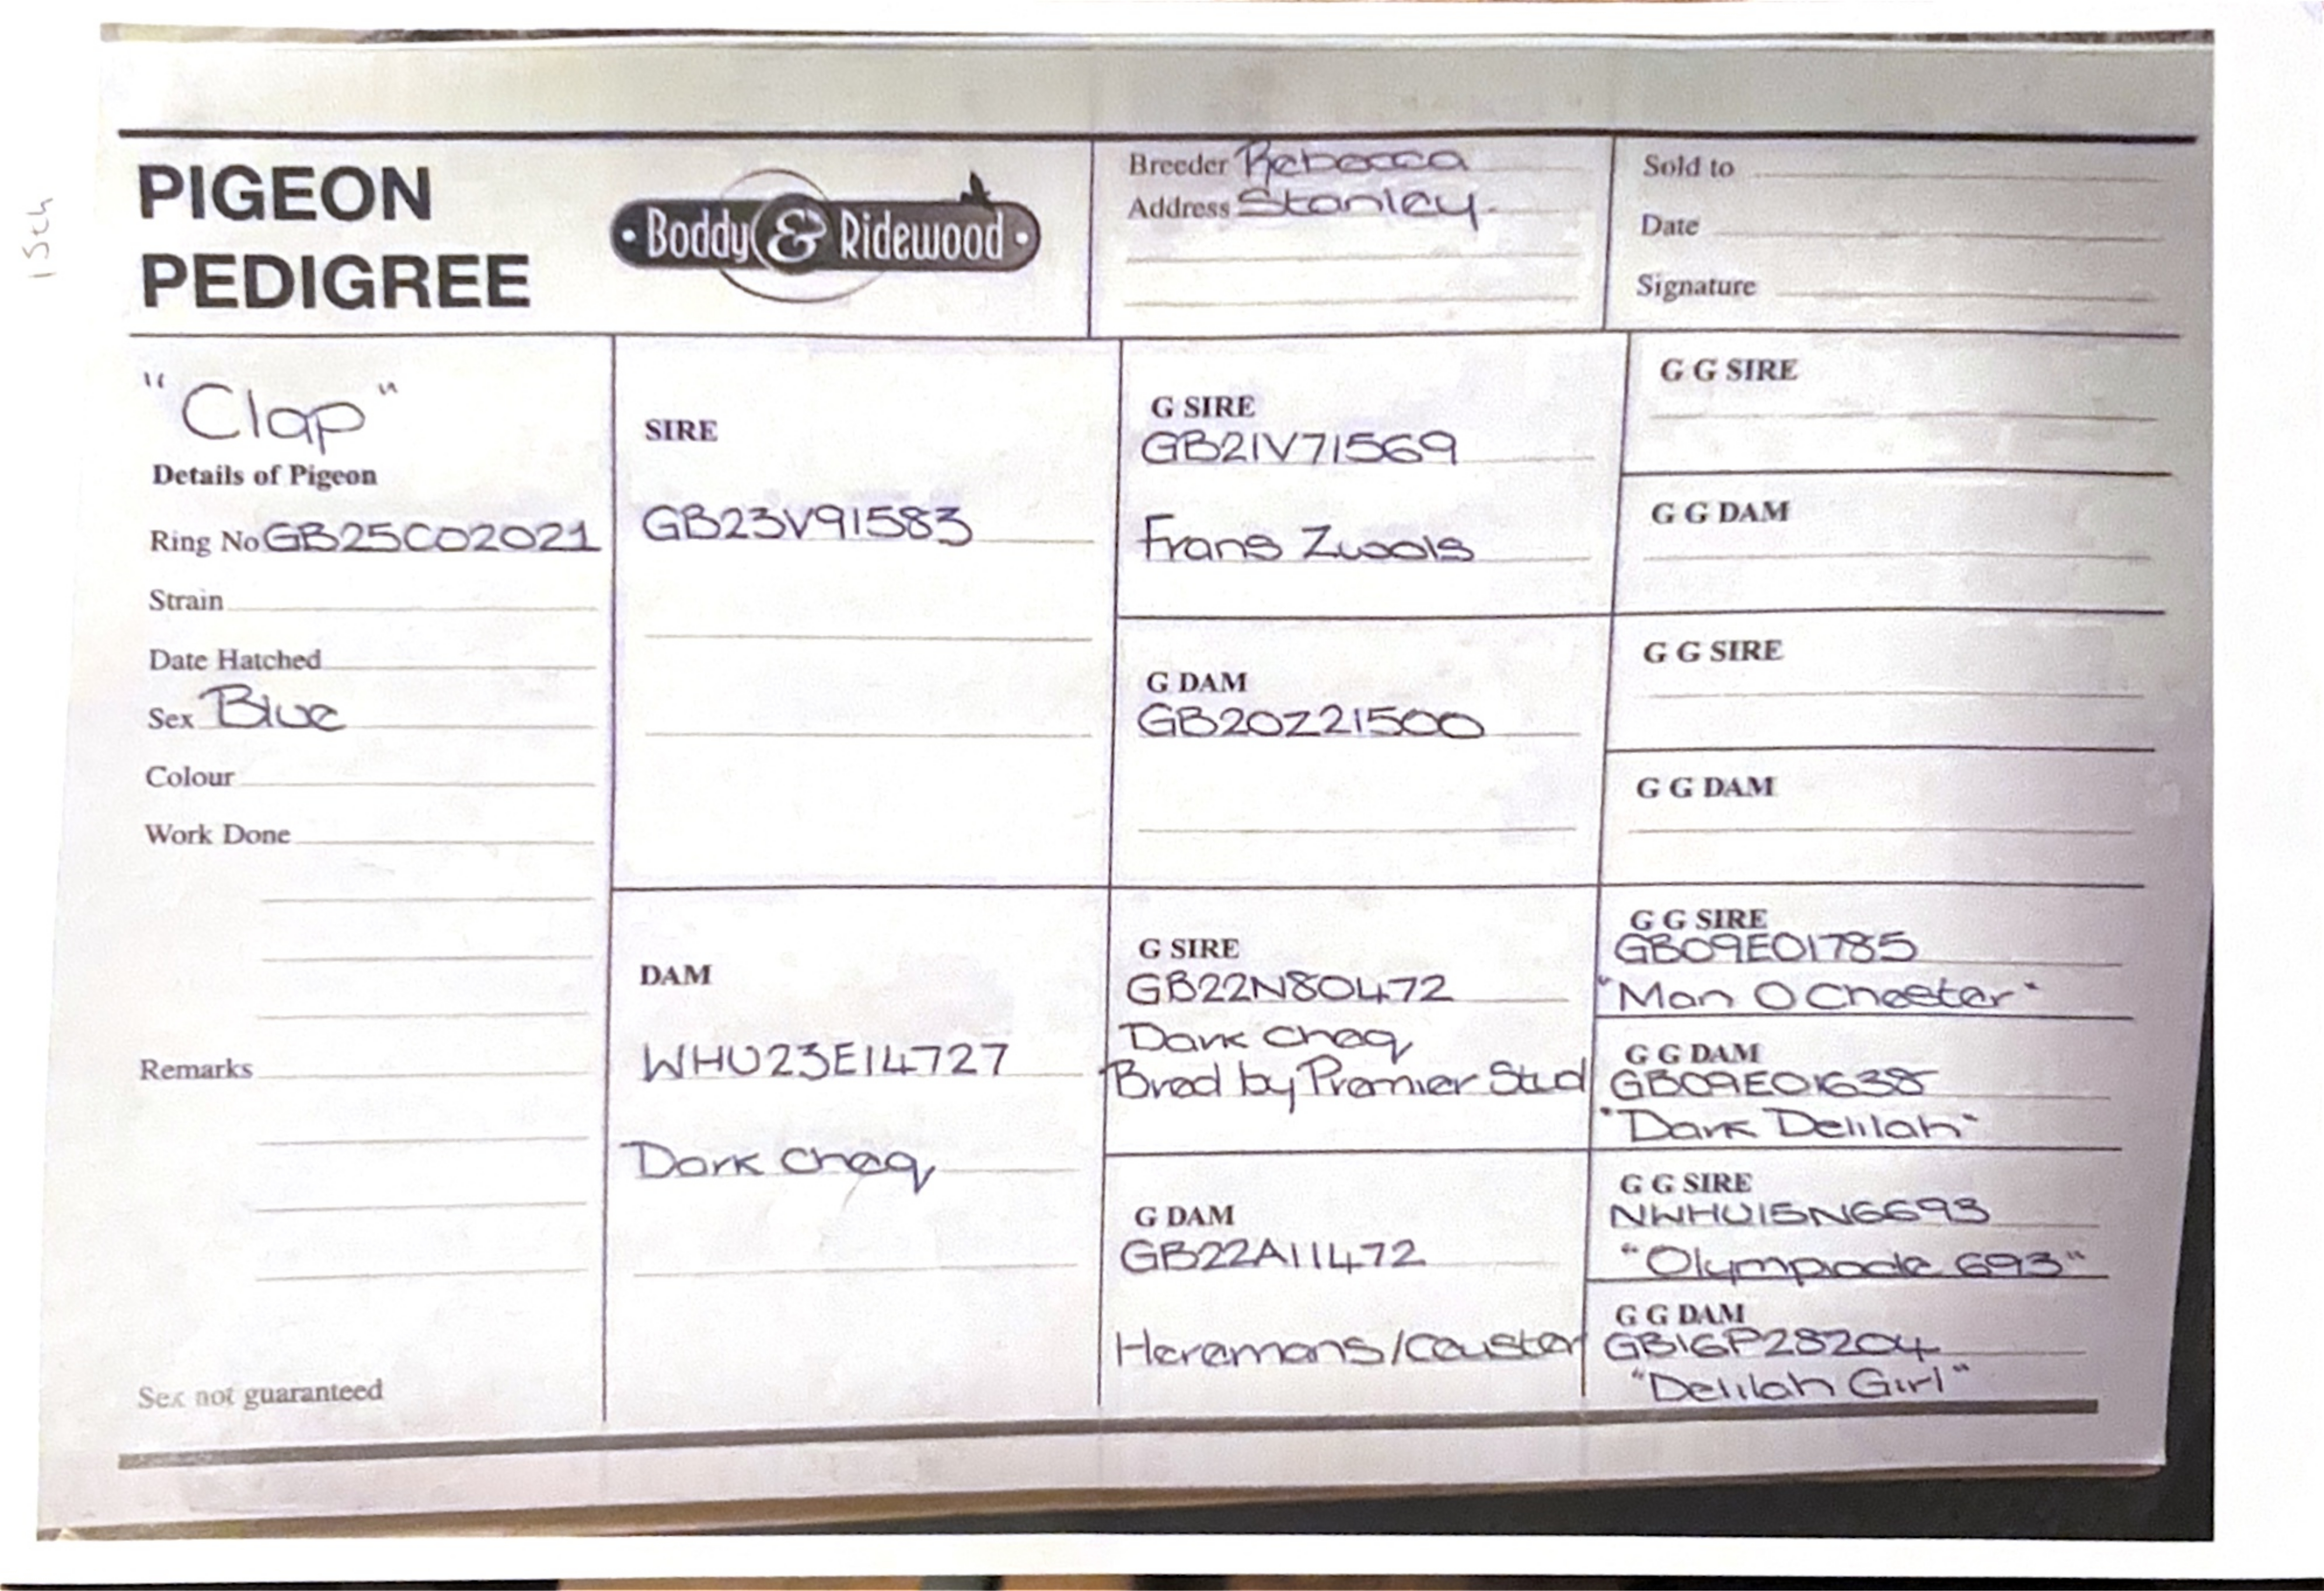 15th
PIGEON
PEDIGREE
• Boddy & Ridewood •
Breeder Rebecca
Address Stanley.
Sold to
Date
Signature
"Clap"
Details of Pigeon
Ring No GB25C02021
Strain
Date Hatched
Sex Blue
Colour
Work Done
Remarks
Sex not guaranteed
SIRE
GB23V91583
DAM
WHU23E14727
Dark Cheq
G SIRE
GB21V71569
Frans Zwols
G DAM
GB20Z21500
G SIRE
GB22N80472
Dark Cheq
Bred by Premier Stud
G DAM
GB22A11472
Heremans/Ceuster
G G SIRE
G G DAM
G G SIRE
G G DAM
G G SIRE
GB09E01785
"Man O Cheester"
G G DAM
GB09E01638
"Dark Delilah"
G G SIRE
NWHU15N6693
"Olympiade 693"
G G DAM
GB16P28204
"Delilah Girl"